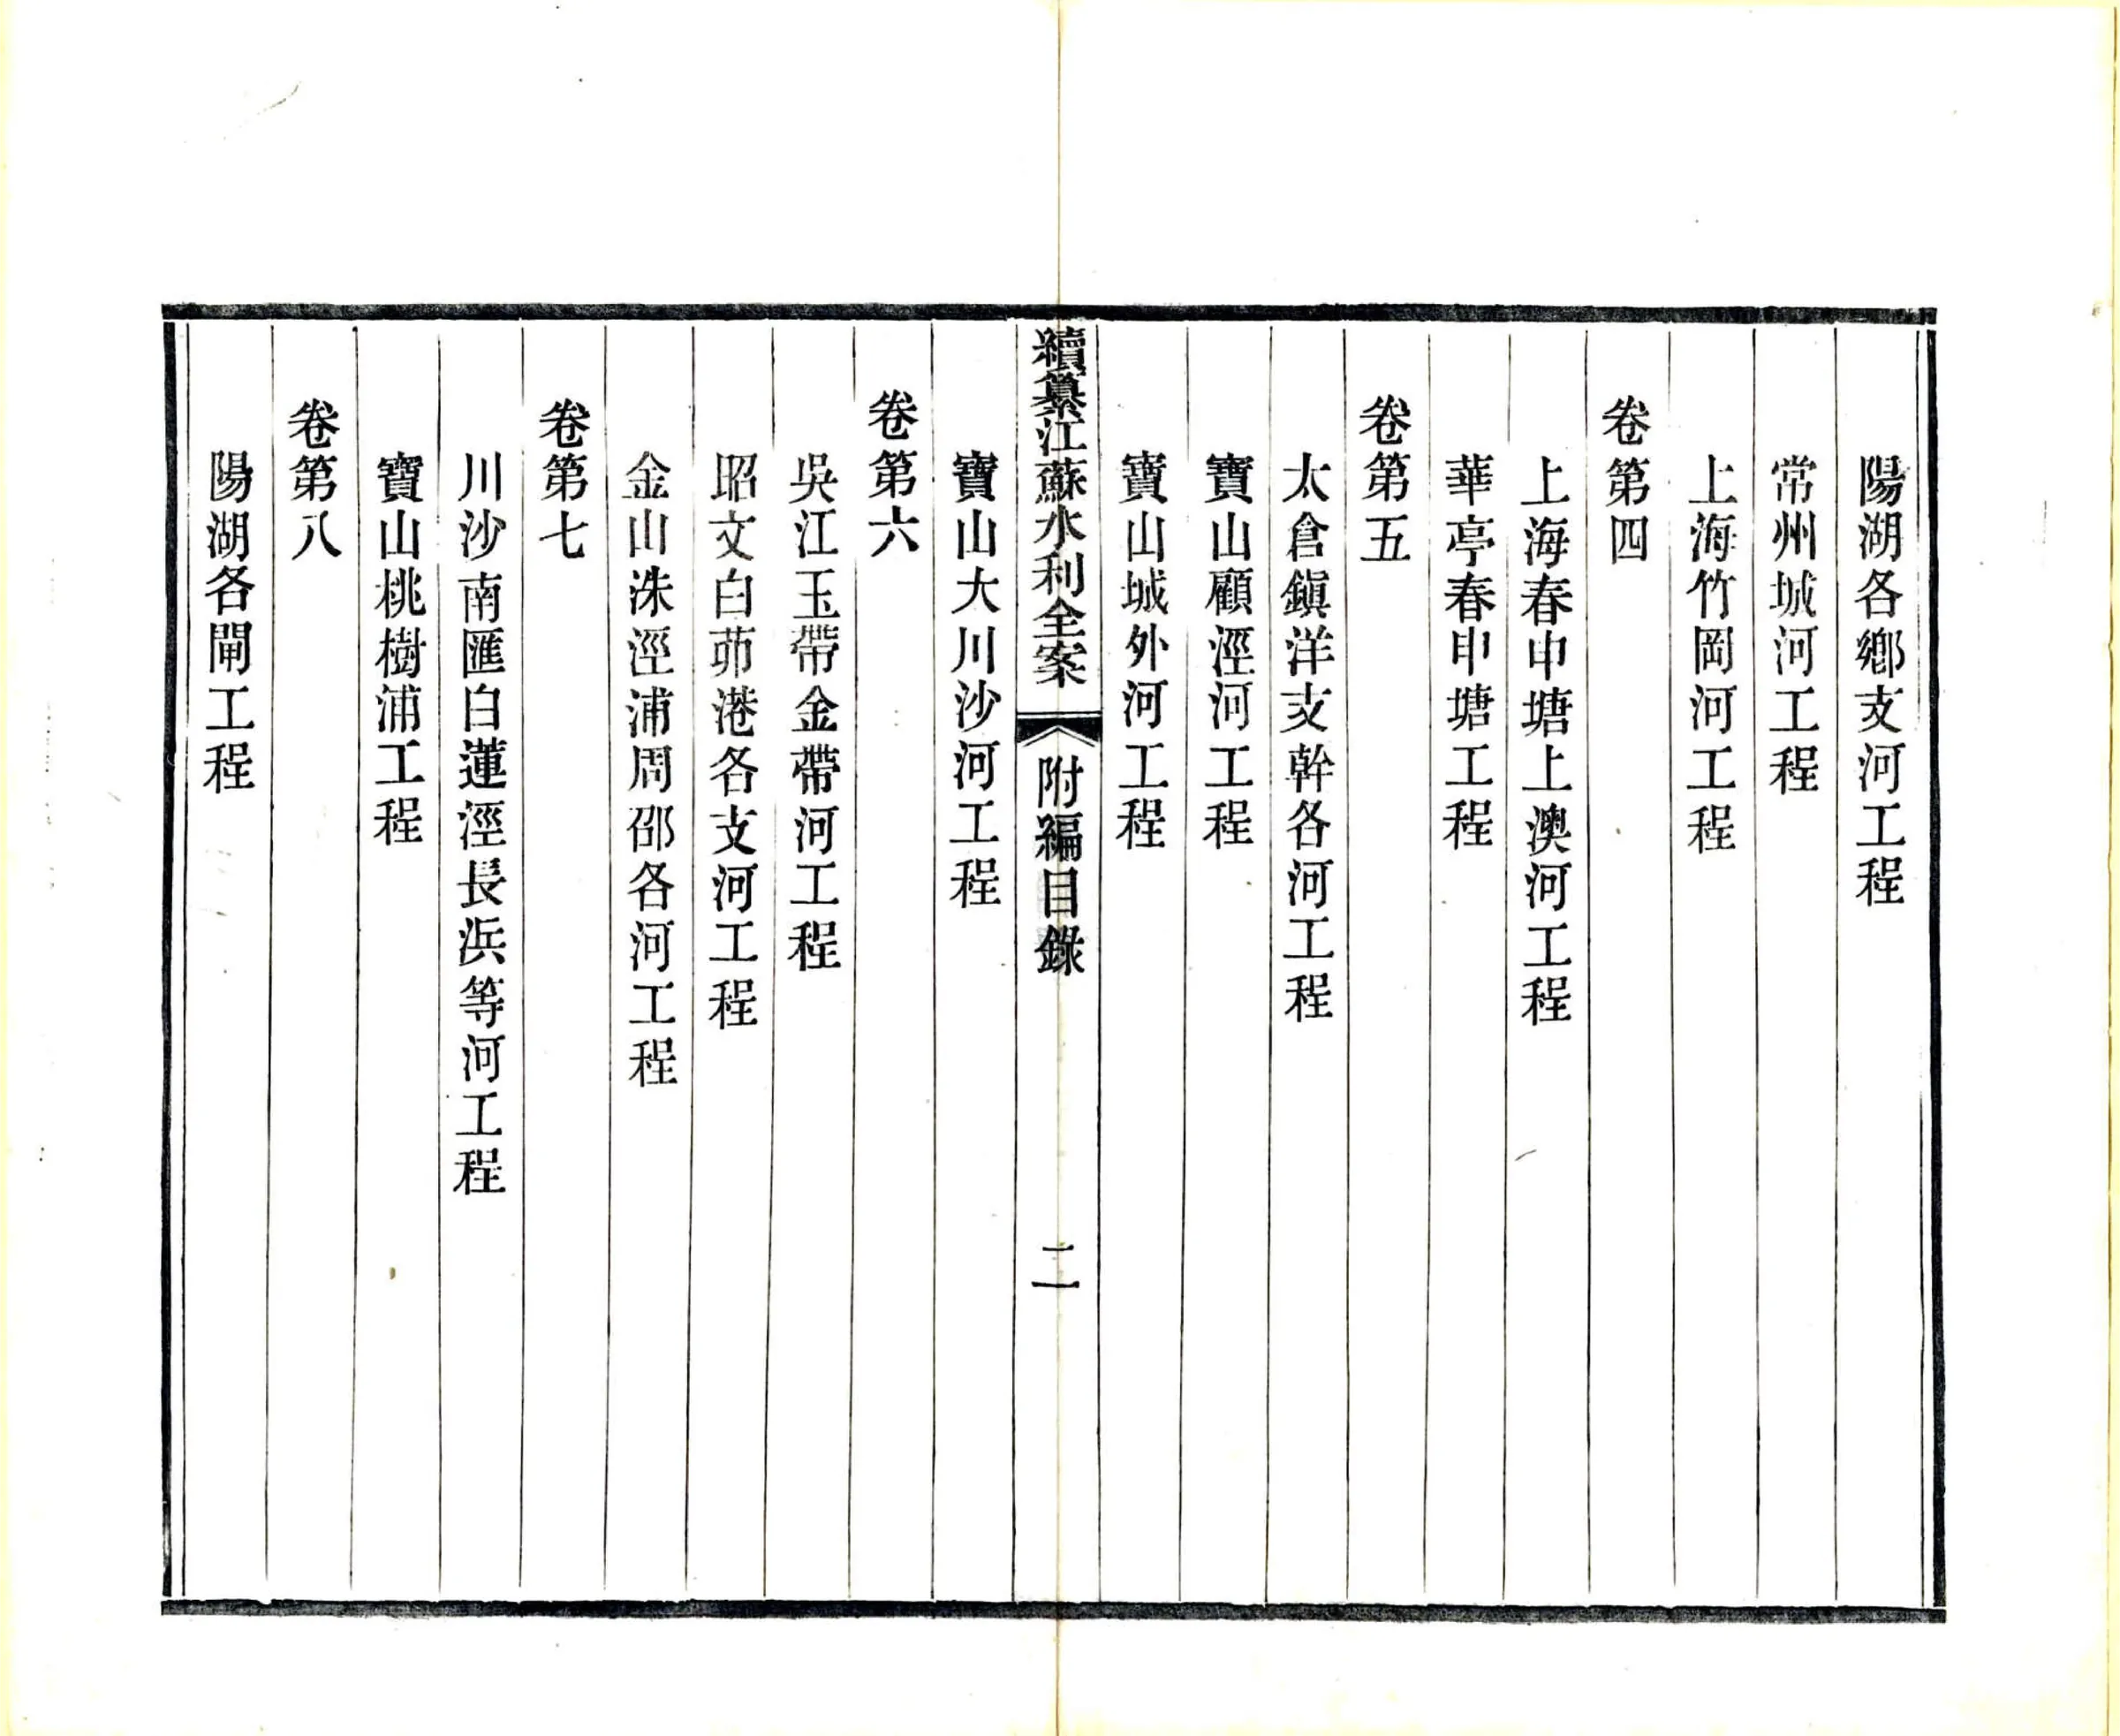 陽湖各鄕支河工程
常州城河工程
上海竹岡河工程
卷第四
上海春申塘上澳河工程
華亭春申塘工程
卷第五
太倉鎭洋支幹各河工程
寶山顧涇河工程
寶山城外河工程
續纂江蘇水利全案 附編目錄 二
寶山大川沙河工程
卷第六
吳江玉帶金帶河工程
昭文白茆港各支河工程
金山洙涇浦周邵各河工程
卷第七
川沙南匯白蓮涇長浜等河工程
寶山桃樹浦工程
卷第八
陽湖各閘工程